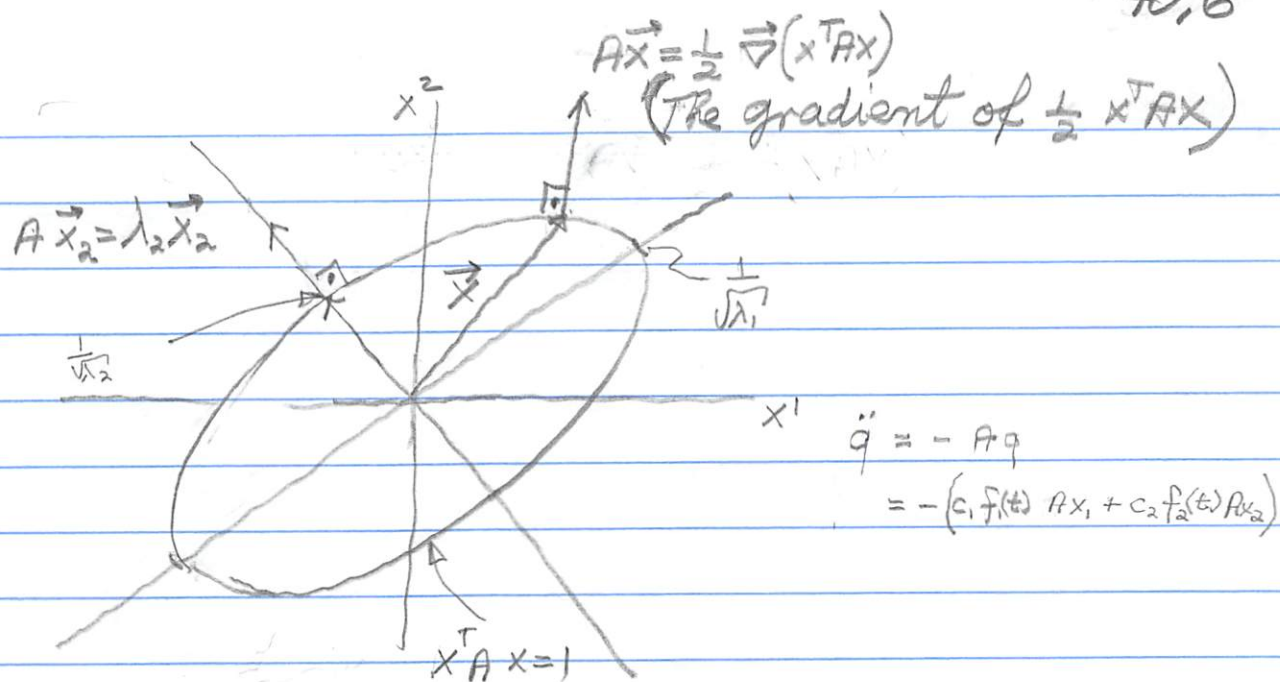 10.6
A\vec{x} = \frac{1}{2} \vec{\nabla}(x^T A x)
(The gradient of \frac{1}{2} x^T A x)
x^2
A\vec{x_2} = λ_2\vec{x_2}
\vec{x}
\frac{1}{\sqrt{λ_1}}
\frac{1}{\sqrt{λ_2}}
x^1
\ddot{q} = - A q
= -(c_1 f_1(t) Ax_1 + c_2 f_2(t) Ax_2)
x^T A x = 1